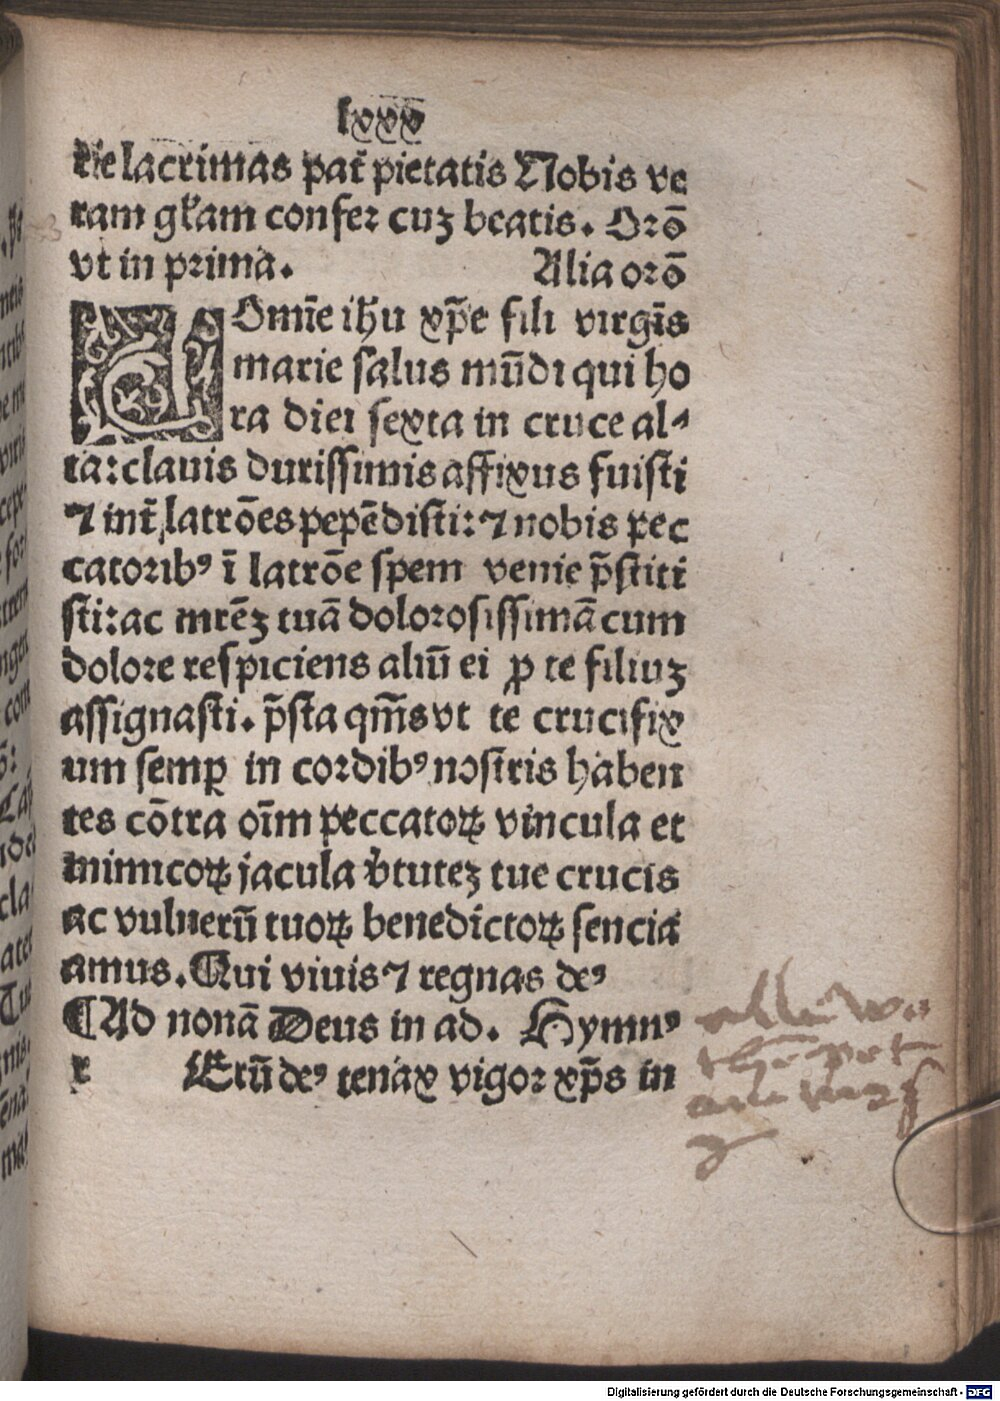 lxxx
rie lacrimas pat̄ pietatis Nobis ve
ram gl̄am confer cuʒ beatis. Orō
vt in prima. Alia orō
Domīe ihū xp̄e fili virgīs
marie salus mūdi qui ho
ra diei sexta in cruce al⸗
ta: clauis durissimis affixus fuisti
⁊ int̄ latrōes pepēdisti: ⁊ nobis pec
catoribꝰ ī latrōe spem venie p̄stiti
sti: ac mrēʒ tuā dolorosissimā cum
dolore respiciens aliū ei ꝓ te filiuʒ
assignasti. p̄sta qm̄s vt te crucifix
um semꝑ in cordibꝰ nostris haben
tes cōtra oīm peccatoꝝ vincula et
inimicoꝝ jacula v̄tuteʒ tue crucis
ac vulnerū tuoꝝ benedictoꝝ sencia
amus. Qui viuis ⁊ regnas deꝰ
¶Ad nonā Deus in ad. Hymnꝰ
r Erū deꝰ tenax vigor xp̄s in
Digitalisierung gefördert durch die Deutsche Forschungsgemeinschaft - DFG